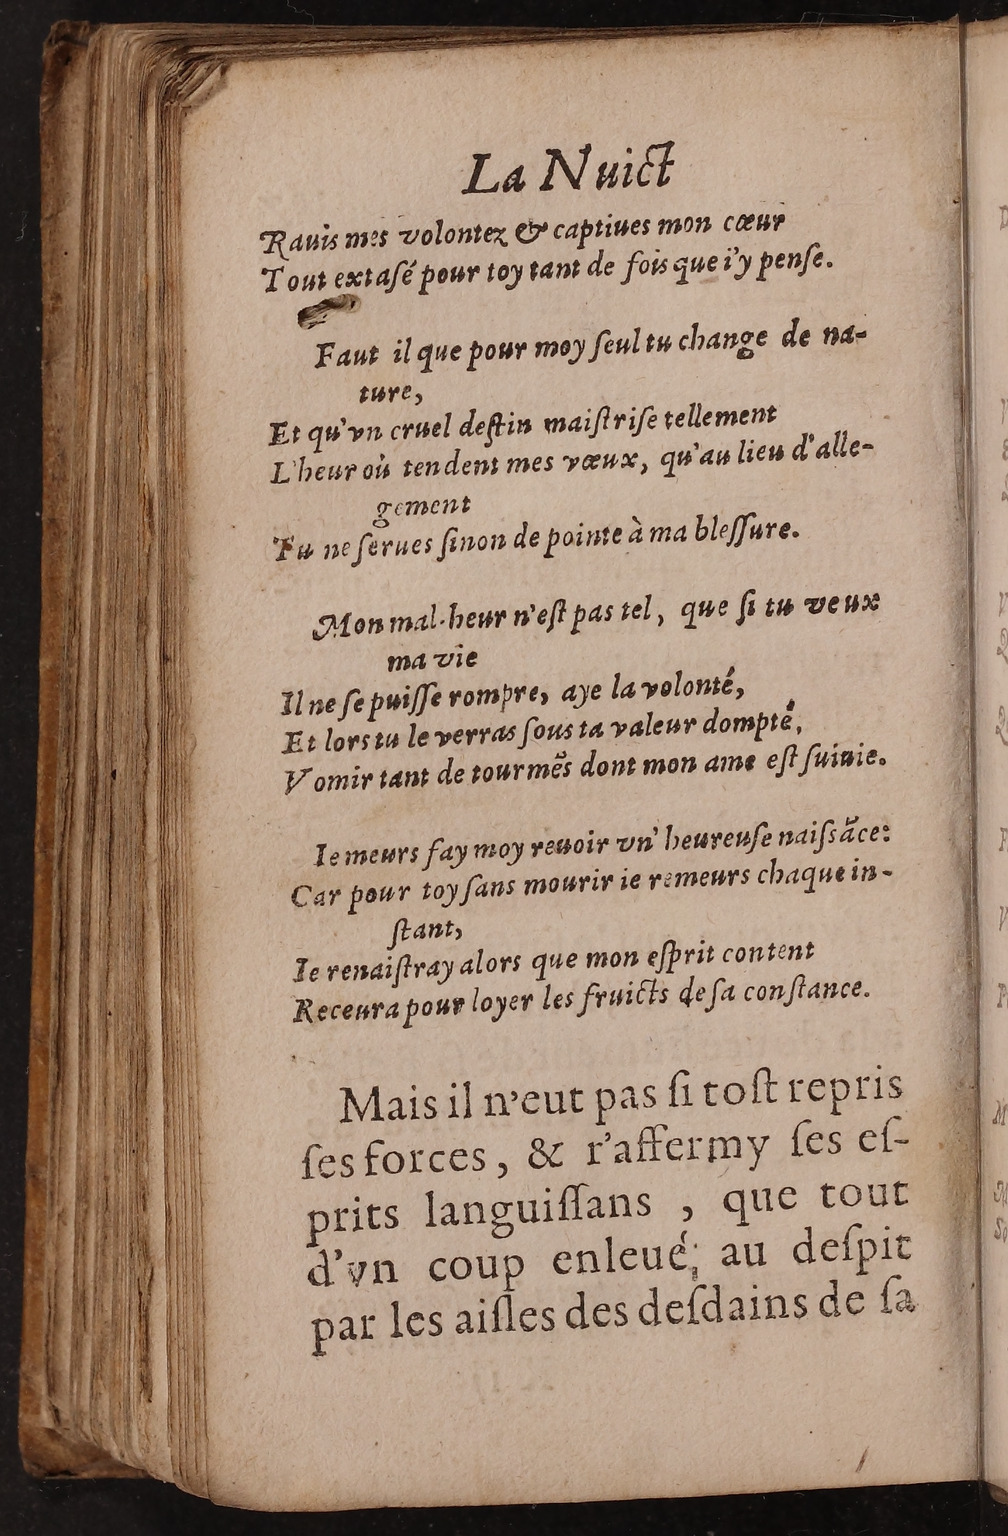 La Nuict
Rauis mes volontez & captiues mon cœur
Tout extaſé pour toy tant de fois que i'y penſe.
Faut il que pour moy ſeul tu change de na-
ture,
Et qu'vn cruel deſtin maiſtriſe tellement
L'heur où tendent mes vœux, qu'au lieu d'alle-
gement
Tu ne ſerues ſinon de pointe à ma bleſſure.
Mon mal-heur n'eſt pas tel, que ſi tu veux
ma vie
Il ne ſe puiſſe rompre, aye la volonté,
Et lors tu le verras ſous ta valeur dompté,
Vomir tant de tourmẽs dont mon ame eſt ſuiuie.
Ie meurs fay moy reuoir vn' heureuſe naiſsãce:
Car pour toy ſans mourir ie remeurs chaque in-
ſtant,
Ie renaiſtray alors que mon eſprit content
Receura pour loyer les fruicts de ſa conſtance.
Mais il n'eut pas ſi toſt repris
ſes forces, & r'affermy ſes eſ-
prits languiſſans , que tout
d'vn coup enleué; au deſpit
par les aiſles des deſdains de ſa